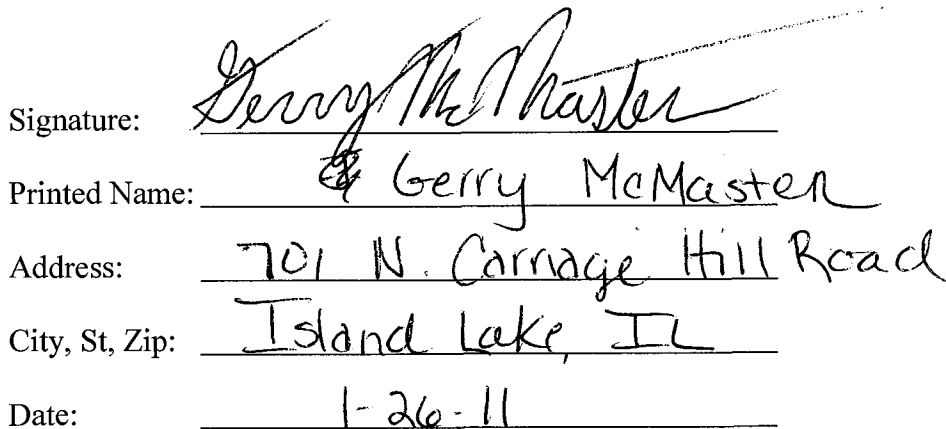 Signature: Gerry McMaster
Printed Name: Gerry McMaster
Address: 701 N. Carriage Hill Road
City, St, Zip: Island Lake, IL
Date: 1-26-11